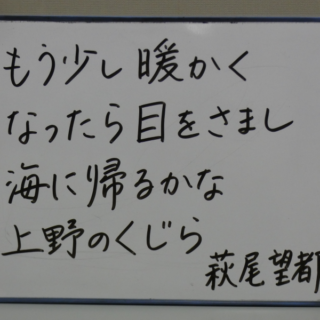 もう少し暖かく
なったら目をさまし
海に帰るかな
上野のくじら
萩尾望都